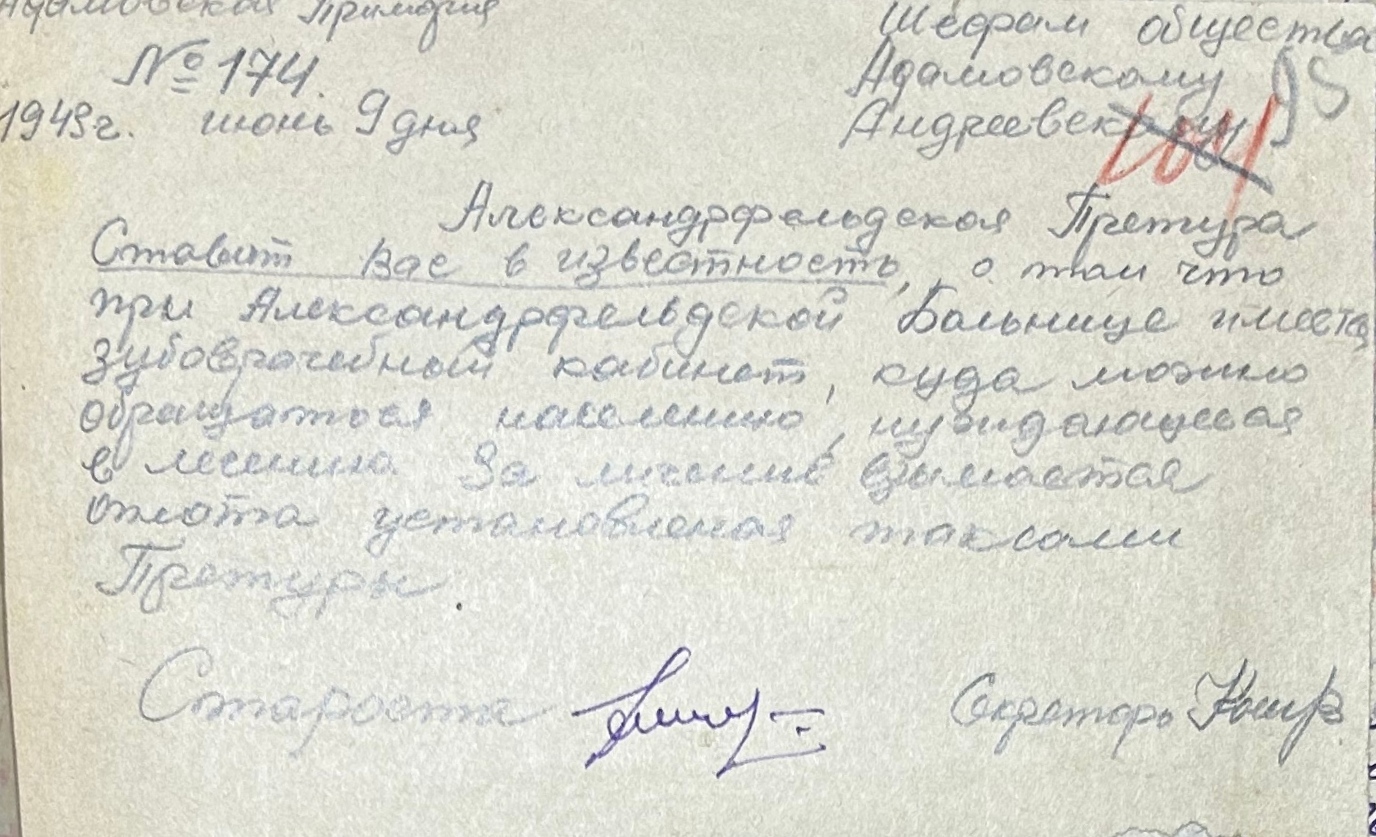 Адамовская Примэрия
№ 174.
1943 г. июнь 9 дня
Шефам общества
Адамовскому
Андреевскому
95
104
Александрфельдская Претура
Ставит вас в известность, о том что
при Александрфельдской Больнице имеется
зубоврачебный кабинет, куда можно
обращаться населению, нуждающееся
в лечению. За лечение взымается
оплата установленая таксами
Претуры.
Староста
Секретарь